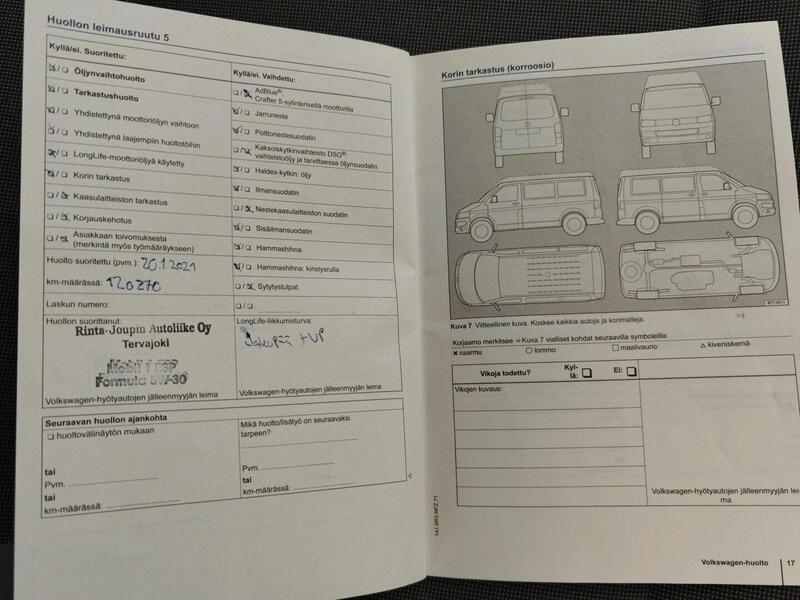 Huollon leimausruutu 5
Kyllä/ei. Suoritettu:
☒/❏ Öljynvaihtohuolto
☒/❏ Tarkastushuolto
☒/❏ Yhdistettynä moottoriöljyn vaihtoon
☒/❏ Yhdistettynä laajempiin huoltotöihin
☒/❏ LongLife-moottoriöljyä käytetty
☒/❏ Korin tarkastus
❏/☒ Kaasulaitteiston tarkastus
❏/☒ Korjauskehotus
❏/☒ Asiakkaan toivomuksesta
(merkintä myös työmääräykseen)
Huolto suoritettu (pvm.): 20.1.2021
km-määrässä: 120270
Laskun numero:
Huollon suorittanut:
Rinta-Joupin Autoliike Oy
Tervajoki
Mobil 1 ESP
Formula 5W-30
Volkswagen-hyötyautojen jälleenmyyjän leima
Kyllä/ei. Vaihdettu:
❏/☒ AdBlue®:
Crafter 5-sylinterisellä moottorilla
☒/❏ Jarruneste
☒/❏ Polttonestesuodatin
❏/☒ Kaksoiskytkinvaihteisto DSG®:
vaihteistoöljy ja tarvittaessa öljynsuodatin
☒/❏ Haldex-kytkin: öljy
☒/❏ Ilmansuodatin
❏/☒ Nestekaasulaitteiston suodatin
☒/❏ Sisäilmansuodatin
☒/❏ Hammashihna
☒/❏ Hammashihna: kiristysrulla
❏/☒ Sytytystulpat
❏/❏ ........................
LongLife-liikkumisturva:
Jakopää + VP
Volkswagen-hyötyautojen jälleenmyyjän leima
Seuraavan huollon ajankohta
❏ huoltovälinäytön mukaan
tai
Pvm. ........................
tai
km-määrässä: ........................
Mikä huolto/lisätyö on seuraavaksi
tarpeen? ........................
Pvm. ........................
tai
km-määrässä: ........................
Korin tarkastus (korroosio)
Kuva 7 Viitteellinen kuva. Koskee kaikkia autoja ja korimalleja.
Korjaamo merkitsee ⇒ Kuva 7 vialliset kohdat seuraavilla symboleilla:
✖ naarmu ○ lommo □ maalivaurio △ kiveniskemä
Vikoja todettu? Kyl-
lä: ❏ Ei: ❏
Vikojen kuvaus:
Volkswagen-hyötyautojen jälleenmyyjän lei-
ma
141.5R3.NFZ.71
Volkswagen-huolto 17